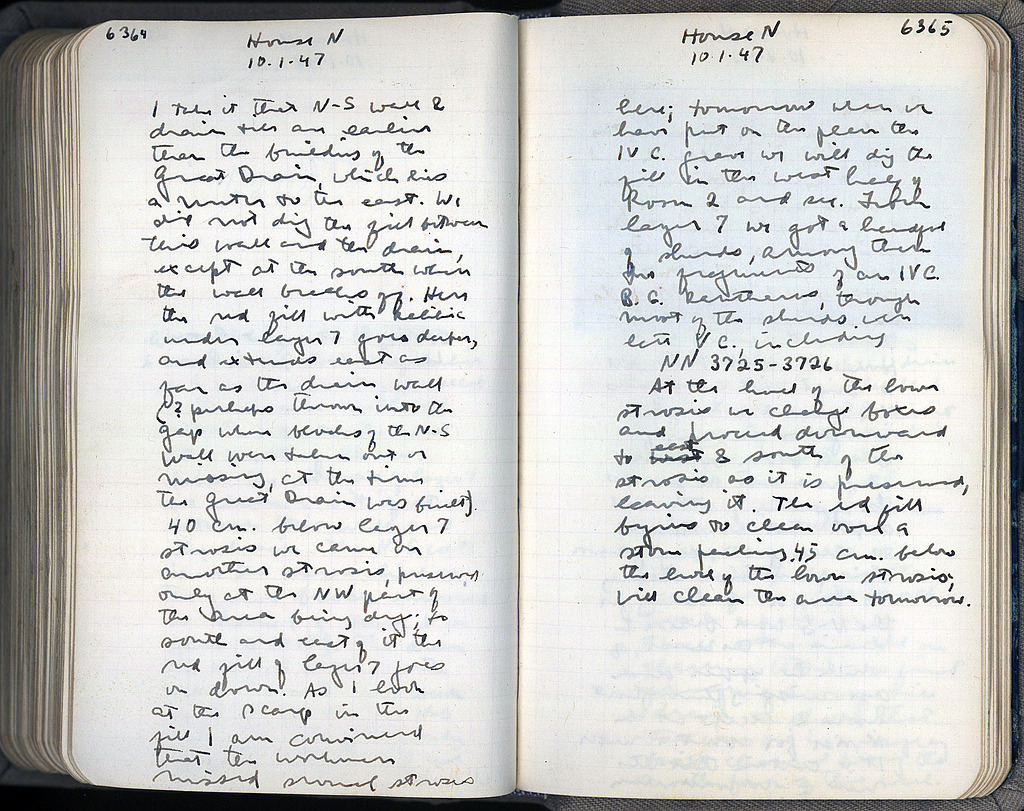 6364
House N
10.1.47
I take it that N-S wall &
drain tiles are earlier
than the building of the
Great Drain, which lies
a meter to the east. We
did not dig the fill between
this wall and the drain,
except at the south where
the wall breaks off. Here
the red fill with
under layer 7 goes deeper,
and extends east as
far as the drain wall
(? perhaps thrown into the
gap when blocks of the N-S
wall were taken out or
missing, at the time
the Great Drain was built).
40 cm. below layer 7
strosis we came on
another strosis, preserved
only at the NW part of
the area being dug; to
south and east of it the
red fill of layer 7 goes
on down. As I look
at the scarp in the
fill I am convinced
that the workmen
missed several strosis
6365
House N
10.1.47
here; tomorrow when we
have put on the plan the
IV C. we will dig the
fill in the west half of
Room 2 and see. From
layer 7 we got a handful
of sherds, among them
fragments of an IV C.
B.C. kantharos, though
most of the sherds were
late V C. including
NN 3725-3726
At the level of the lower
strosis we change boxes
and proceed downward
to east & south of the
strosis as it is preserved,
leaving it. The red fill
begins to clean over a
stone packing .45 cm. below
the level of the lower strosis;
will clean the area tomorrow.